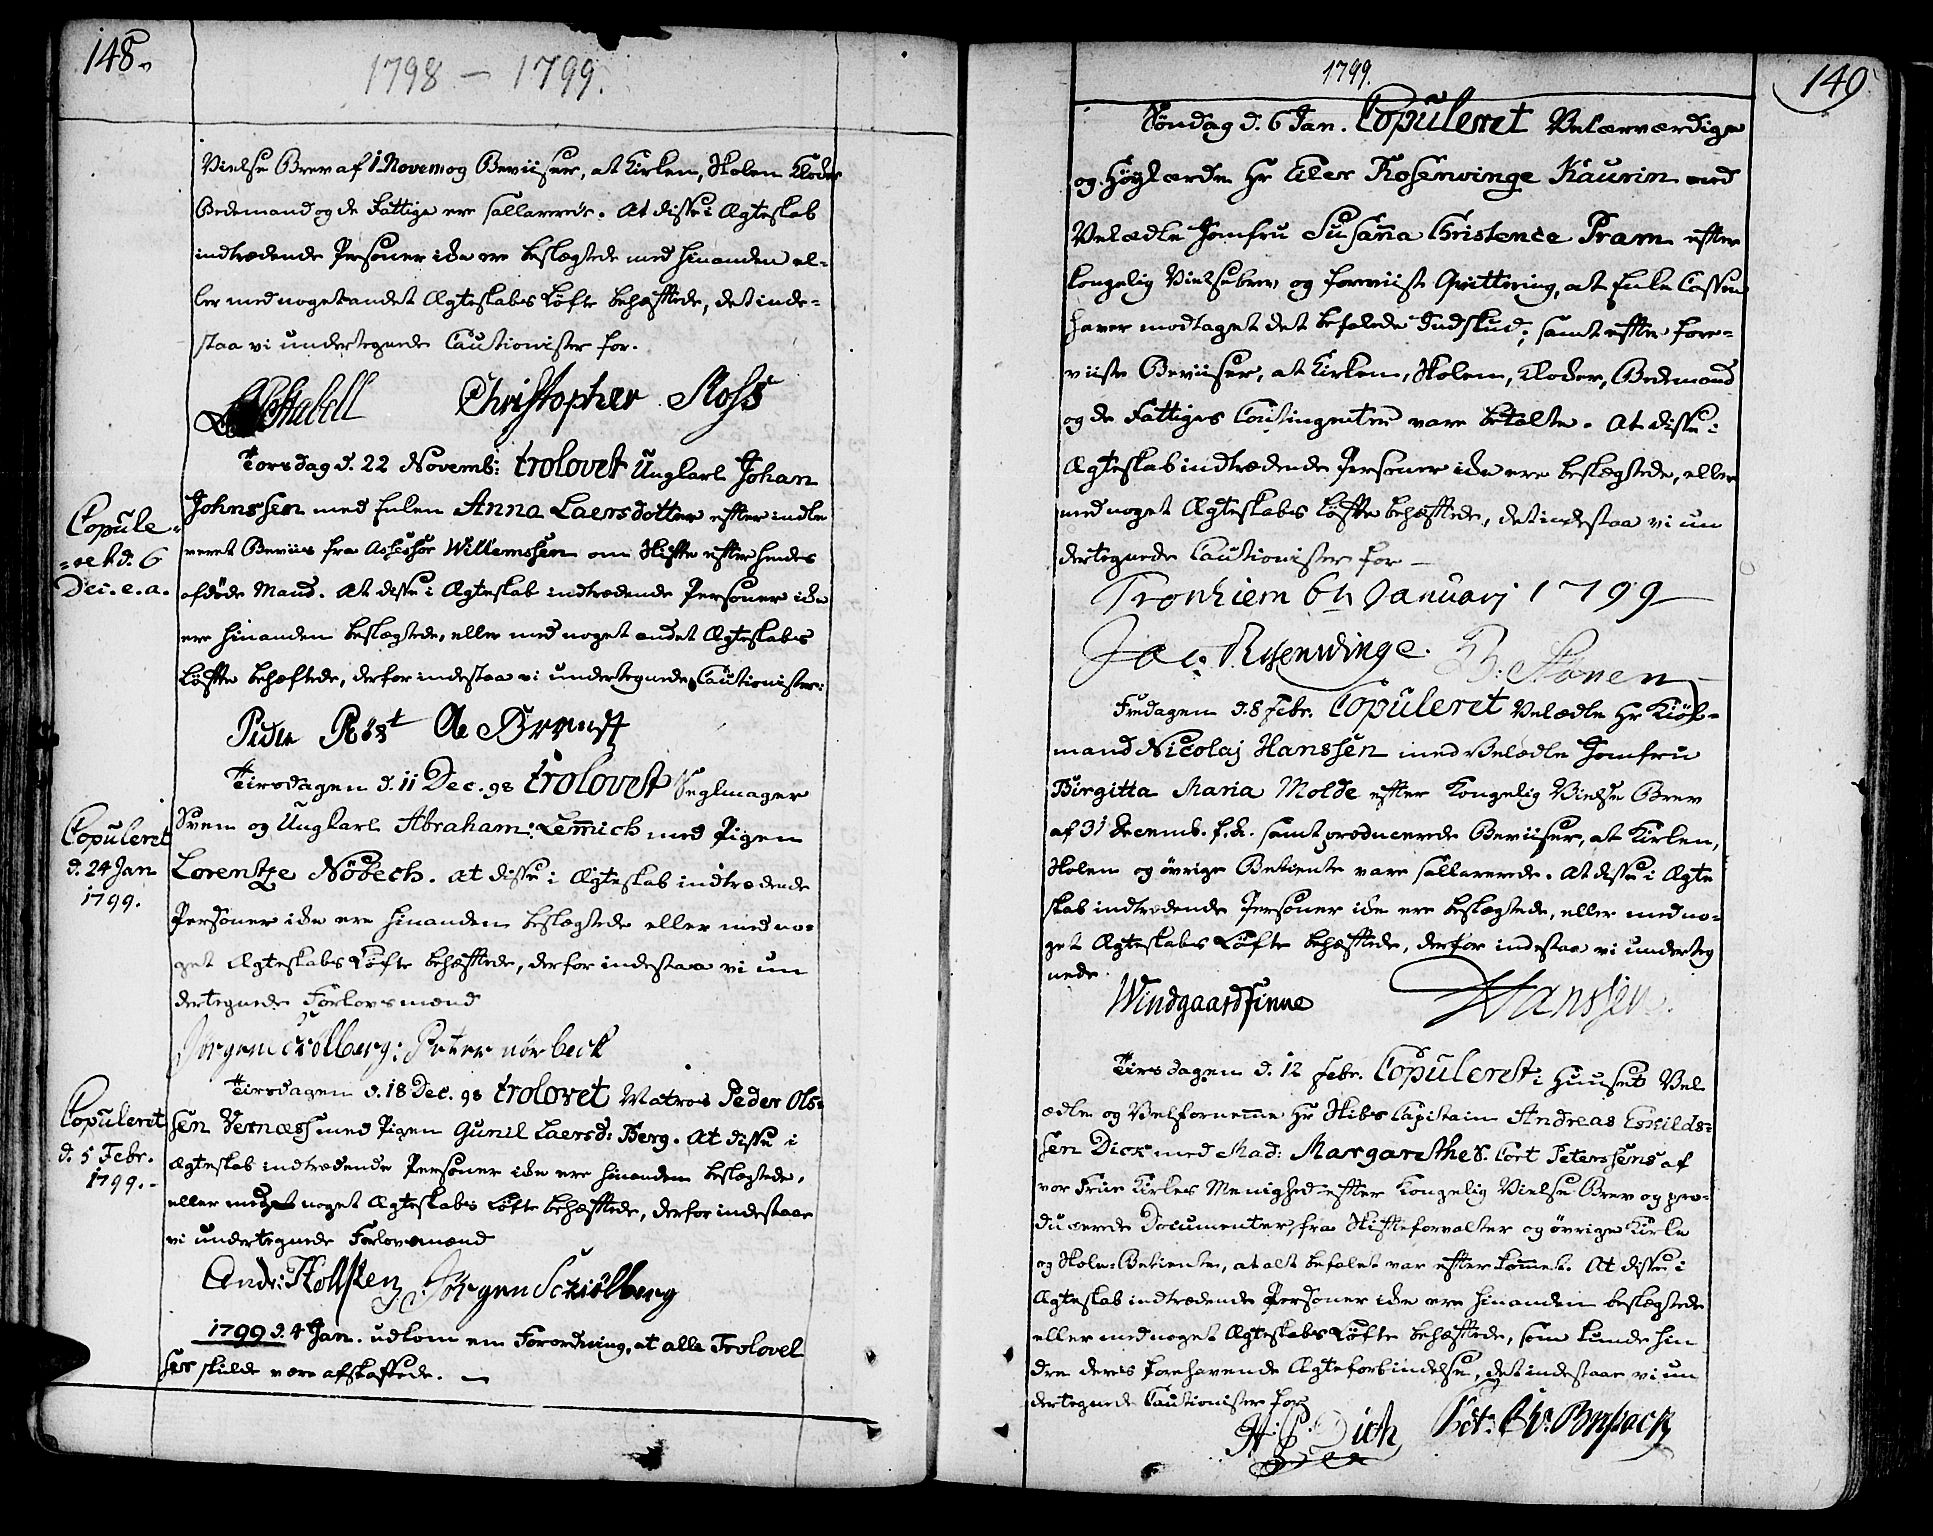 148.
1798 – 1799.
Vielse Brev af 1 Novem og Beviiser, at Kirken, Skolen Kloder
Bedemand og de Fattige ere sallarerede. At disse i Ægteskab
indtrædende Personer ikke ere beslægtede med hinanden el-
ler med noget andet Ægteskabs Løfte behæftede, det inde-
staa vi undertegnede Cautionister for.
Stabell Christopher Ross
Torsdag d. 22 Novemb: trolovet Ungkarl Johan
Johnssen med Enken Anna Laersdotter efter indle
veret Beviis fra Assessor Willemssen om Skifte efter hendes
afdøde Mand. At disse i Ægteskab indtrædende Personer ikke
ere hinanden beslægtede, eller med noget andet Ægteskabs
Løfte behæftede, derfor indestaa vi undertegnede Cautionister:
Copule-
-ret d. 6
Dec. e. a.
Tirsdagen d. 11 Dec. 98 trolovet Seglmager
Svem og Ungkarl Abraham: Lem̄ich med Pigen
Lorentze Nöbech. at disse i Ægteskab indtrædende
Personer ikke ere hinanden beslægtede eller med no-
get Ægteskabs Løfte behæftede, derfor indestaa vi un
dertegnede Forlovsmænd
Copuleret
d. 24 Jan
1799.
Jørgen Schiölberg: Peter nörbeck
Tirsdagen d. 18 Dec. 98 trolovet Matros Peder Ols-
sen Vernæss med Pigen Gunil Laersd: Berg. At disse i
Ægteskab indtrædende Personer ikke ere hinanden beslægtede,
eller med noget Ægteskabs Løfte behæftede, derfor indestaae
vi undertegnede Forlovsmænd
Copuleret
d. 5 Febr.
1799.-
Andr: Hollsten Jørgen Schiølberg
1799 d. 4 Jan. udkom en Forordning, at alle Trolovel
ser skulde være afskaffede. –
149
1799.
Søndag d. 6 Jan. Copuleret Velærværdige
og Højlærde Hr Eiler Rosenvinge Kaurin med
Velædle Jomfru Susan̄a Christence Pram efter
kongelig Vielsebrev og foreviist Qvittering, at Enke Cassen
haver modtaget det befalede Indskud; samt efter fore-
viiste Beviiser, at Kirken, Skolen, Kloder, Bedemand
og de Fattiges Contingenter vare betalte. At disse i
Ægteskab indtrædende Personer ikke ere beslægtede, eller
med noget Ægteskabs Løfte behæftede, det indestaa vi un
dertegnede Cautionister for –
Tronhiem 6te Januarj 1799
Jac: Rosenvinge. B: Stonen
Fredagen d. 8 Febr. Copuleret Velædle Hr Kiøb-
mand Nicolaj Hanssen med Velædle Jomfru
Birgitta Maria Molde efter Kongelig Vielse Brev
af 31 Decemb. f. A. samt producerede Beviiser, at Kirken,
Skolen og øvrige Betiente vare sallarerede. At disse i Ægte
skab indtrædende Personer ikke ere beslægtede, eller med no-
get Ægteskabs Løfte behæftede, derfor indestaa vi underteg
nede.
Windgaard Finne Hanssen.
Tirsdagen d. 12 Febr. Copuleret i Huuset Vel
ædle og Velfornemme Hr Skibs Capitain Andreas Eskilds-
sen Dick med Mad: Margarethe S. Cort Peterssens af
vor Frue Kirkes Menighed efter Kongelig Vielse Brev og pro-
ducerede Documenter fra Skifteforvalter og øvrige Kirke
og Skole-Betiente, at alt befalet var efterkom̄et. At disse i
Ægteskab indtrædende Personer ikke ere hinanden beslægtede
eller med noget Ægteskabs Løfte behæftede, som kunde hin
dre deres forehavende Ægteforbindelse, det indestaae vi un
dertegnede Cautionister for